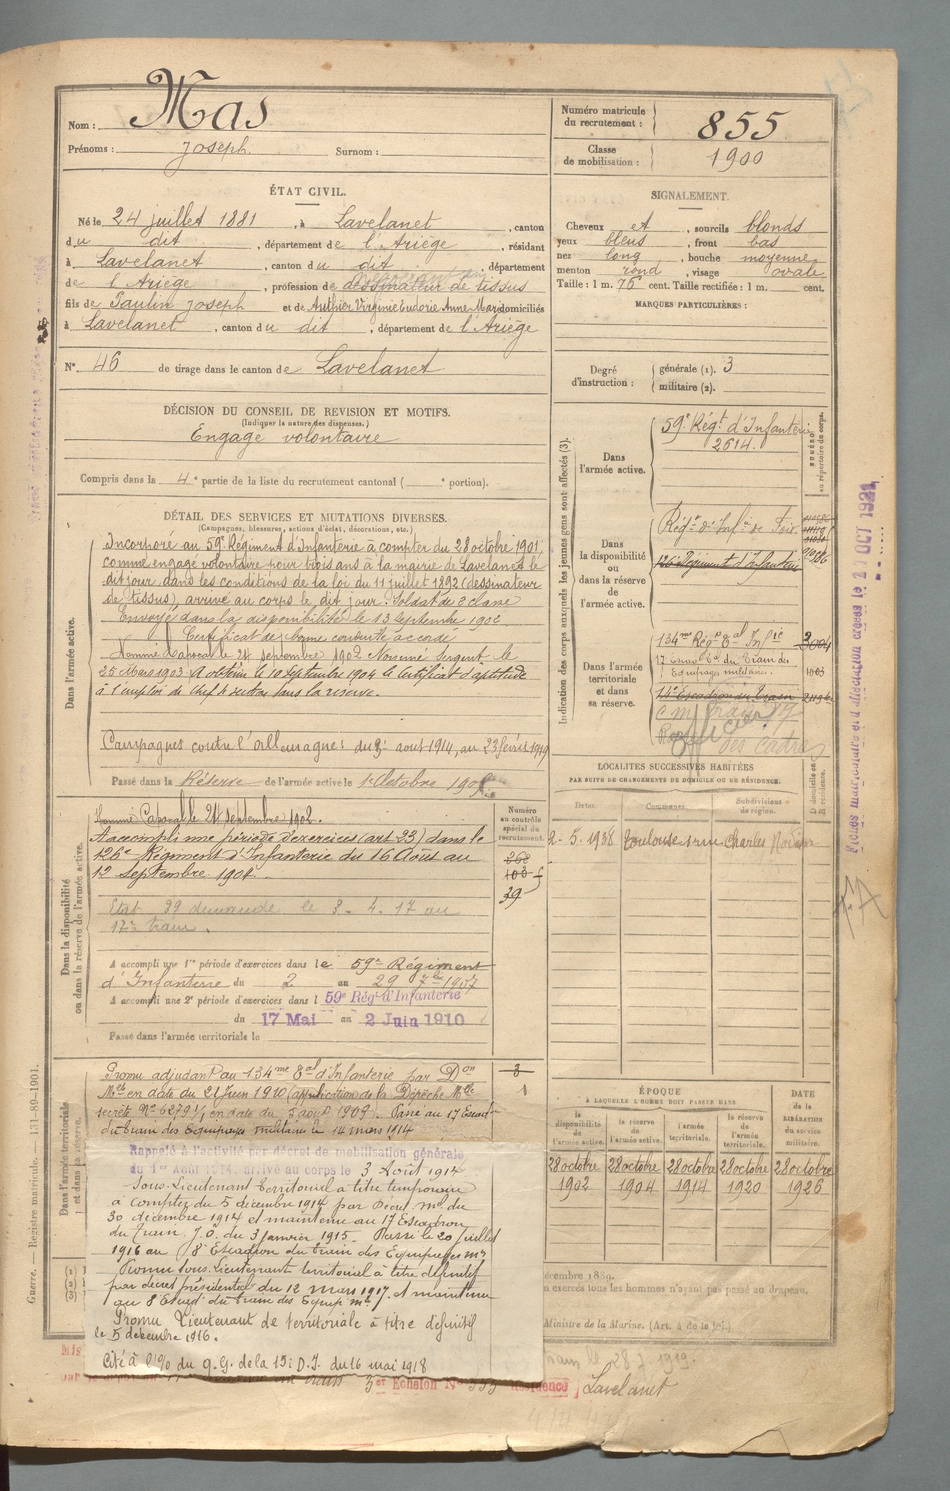 Nom : Mas
Prénoms : Joseph Surnom :
Numéro matricule du recrutement : 855
Classe de mobilisation : 1900
ÉTAT CIVIL.
Né le 24 juillet 1881, à Lavelanet, canton
du dit, département de l'Ariège, résidant
à Lavelanet, canton du dit, département
de l'Ariège, profession de dessinateur de tissus
fils de Paulin Joseph et de Authier Virginie Eudorie Anne-Marie domiciliés
à Lavelanet, canton du dit, département de l'Ariège
N° 46 de tirage dans le canton de Lavelanet
SIGNALEMENT.
Cheveux et, sourcils blonds
yeux bleus, front bas
nez long, bouche moyenne
menton rond, visage ovale
Taille : 1 m. 76 cent. Taille rectifiée : 1 m. cent.
MARQUES PARTICULIÈRES :
Degré d'instruction : générale (1). 3
militaire (2).
DÉCISION DU CONSEIL DE REVISION ET MOTIFS.
(Indiquer la nature des dispenses.)
Engagé volontaire
Compris dans la 4e partie de la liste du recrutement cantonal ( e portion).
DÉTAIL DES SERVICES ET MUTATIONS DIVERSES.
(Campagnes, blessures, actions d'éclat, décorations, etc.)
Dans l'armée active.
Incorporé au 59e Régiment d'Infanterie à compter du 28 octobre 1901,
comme engagé volontaire pour trois ans à la mairie de Lavelanet le
dit jour, dans les conditions de la loi du 11 juillet 1892 (dessinateur
de tissus), arrivé au corps le dit jour. Soldat de 2e classe
Envoyé dans la disponibilité le 13 septembre 1902
Certificat de bonne conduite accordé
Nommé Caporal le 24 septembre 1902 Nommé Sergent le
25 Mars 1903 A obtenu le 10 septembre 1904 le certificat d'aptitude
à l'emploi de chef de section dans la réserve.
Campagnes contre l'Allemagne : du 3 août 1914, au 23 février 1919
Passé dans la Réserve de l'armée active le 1er Octobre 190
Indication des corps auxquels les jeunes gens sont affectés (3).
Dans l'armée active.
59e Régt d'Infanterie
2614.
NUMÉRO au répertoire du corps.
Dans la disponibilité ou dans la réserve de l'armée active.
Régt d'Infie de Foix
126e Régiment d'Infanterie
Dans l'armée territoriale et dans sa réserve.
134me Régt Tal Infie 3004
17 Escadon Tal du Train des
Equipages militaires. 1003
des cadres
LOCALITÉS SUCCESSIVES HABITÉES
PAR SUITE DE CHANGEMENTS DE DOMICILE OU DE RÉSIDENCE.
Dates. Communes. Subdivisions de région. D domicile ou R résidence.
2-5-1938 Toulouse rue Charles
Dans la disponibilité ou dans la réserve de l'armée active.
Numéro au contrôle spécial du recrutement.
Nommé Caporal le 24 septembre 1902.
A accompli une période d'exercices (art 23) dans le
126e Régiment d'Infanterie du 16 Août au
12 septembre 1904.
39
le 3.4.17 au
17e train.
A accompli une 1re période d'exercices dans le 59e Régiment
d'Infanterie du 2 au 29 7bre 1907
A accompli une 2e période d'exercices dans l 59e Régt d'Infanterie
du 17 Mai au 2 Juin 1910
Passé dans l'armée territoriale le
Dans l'armée territoriale et dans sa réserve.
Promu adjudant au 134me Tal d'Infanterie par Don
Mlle en date du 21 Juin 1910 (application de la Dépêche Mlle
secrète No 6279 1/1 en date du 5 août 1909. Passé au 17 Escadn
du train des Equipages militaires le 14 mars 1914
Rappelé à l'activité par décret de mobilisation générale
du 1er Août 1914. arrivé au corps le 3 Août 1914
Sous-Lieutenant territorial à titre temporaire
à compter du 5 décembre 1914 par Décret mel du
30 décembre 1914 et maintenu au 17 Escadron
du Train. J.O. du 3 janvier 1915. Passé le 20 juillet
1916 au 8e Escadron du train des Equipages mres
Promu sous-lieutenant territorial à titre définitif
par décret présidentiel du 12 mars 1917. et maintenu
au 8 Escadn du train des Equip mres.
Promu Lieutenant de territoriale à titre définitif
le 5 décembre 1916.
Cité à l'% du q.G. de la 15e D.I. du 16 mai 1918
3er Echelon N° 355 Résidence Lavelanet
ÉPOQUE
À LAQUELLE L'HOMME DOIT PASSER DANS
la disponibilité de l'armée active. la réserve de l'armée active. l'armée territoriale. la réserve de l'armée territoriale.
DATE de la LIBÉRATION du service militaire.
28 octobre 1902 28 octobre 1904 28 octobre 1914 28 octobre 1920 28 octobre 1926
décembre 1889.
en exercés tous les hommes n'ayant pas passé au drapeau.
Ministre de la Marine. (Art. 4 de la loi.)
Guerre. — Registre matricule. — 131-89-1901.